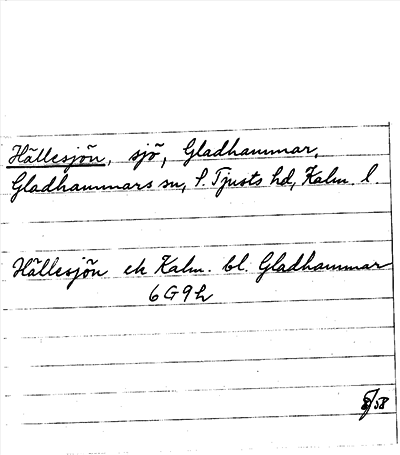 Hällesjön, sjö, Gladhammar,
Gladhammars sn, S. Tjusts hd, Kalm. l.
Hällesjön ek Kalm. bl. Gladhammar
6G9h
8/58